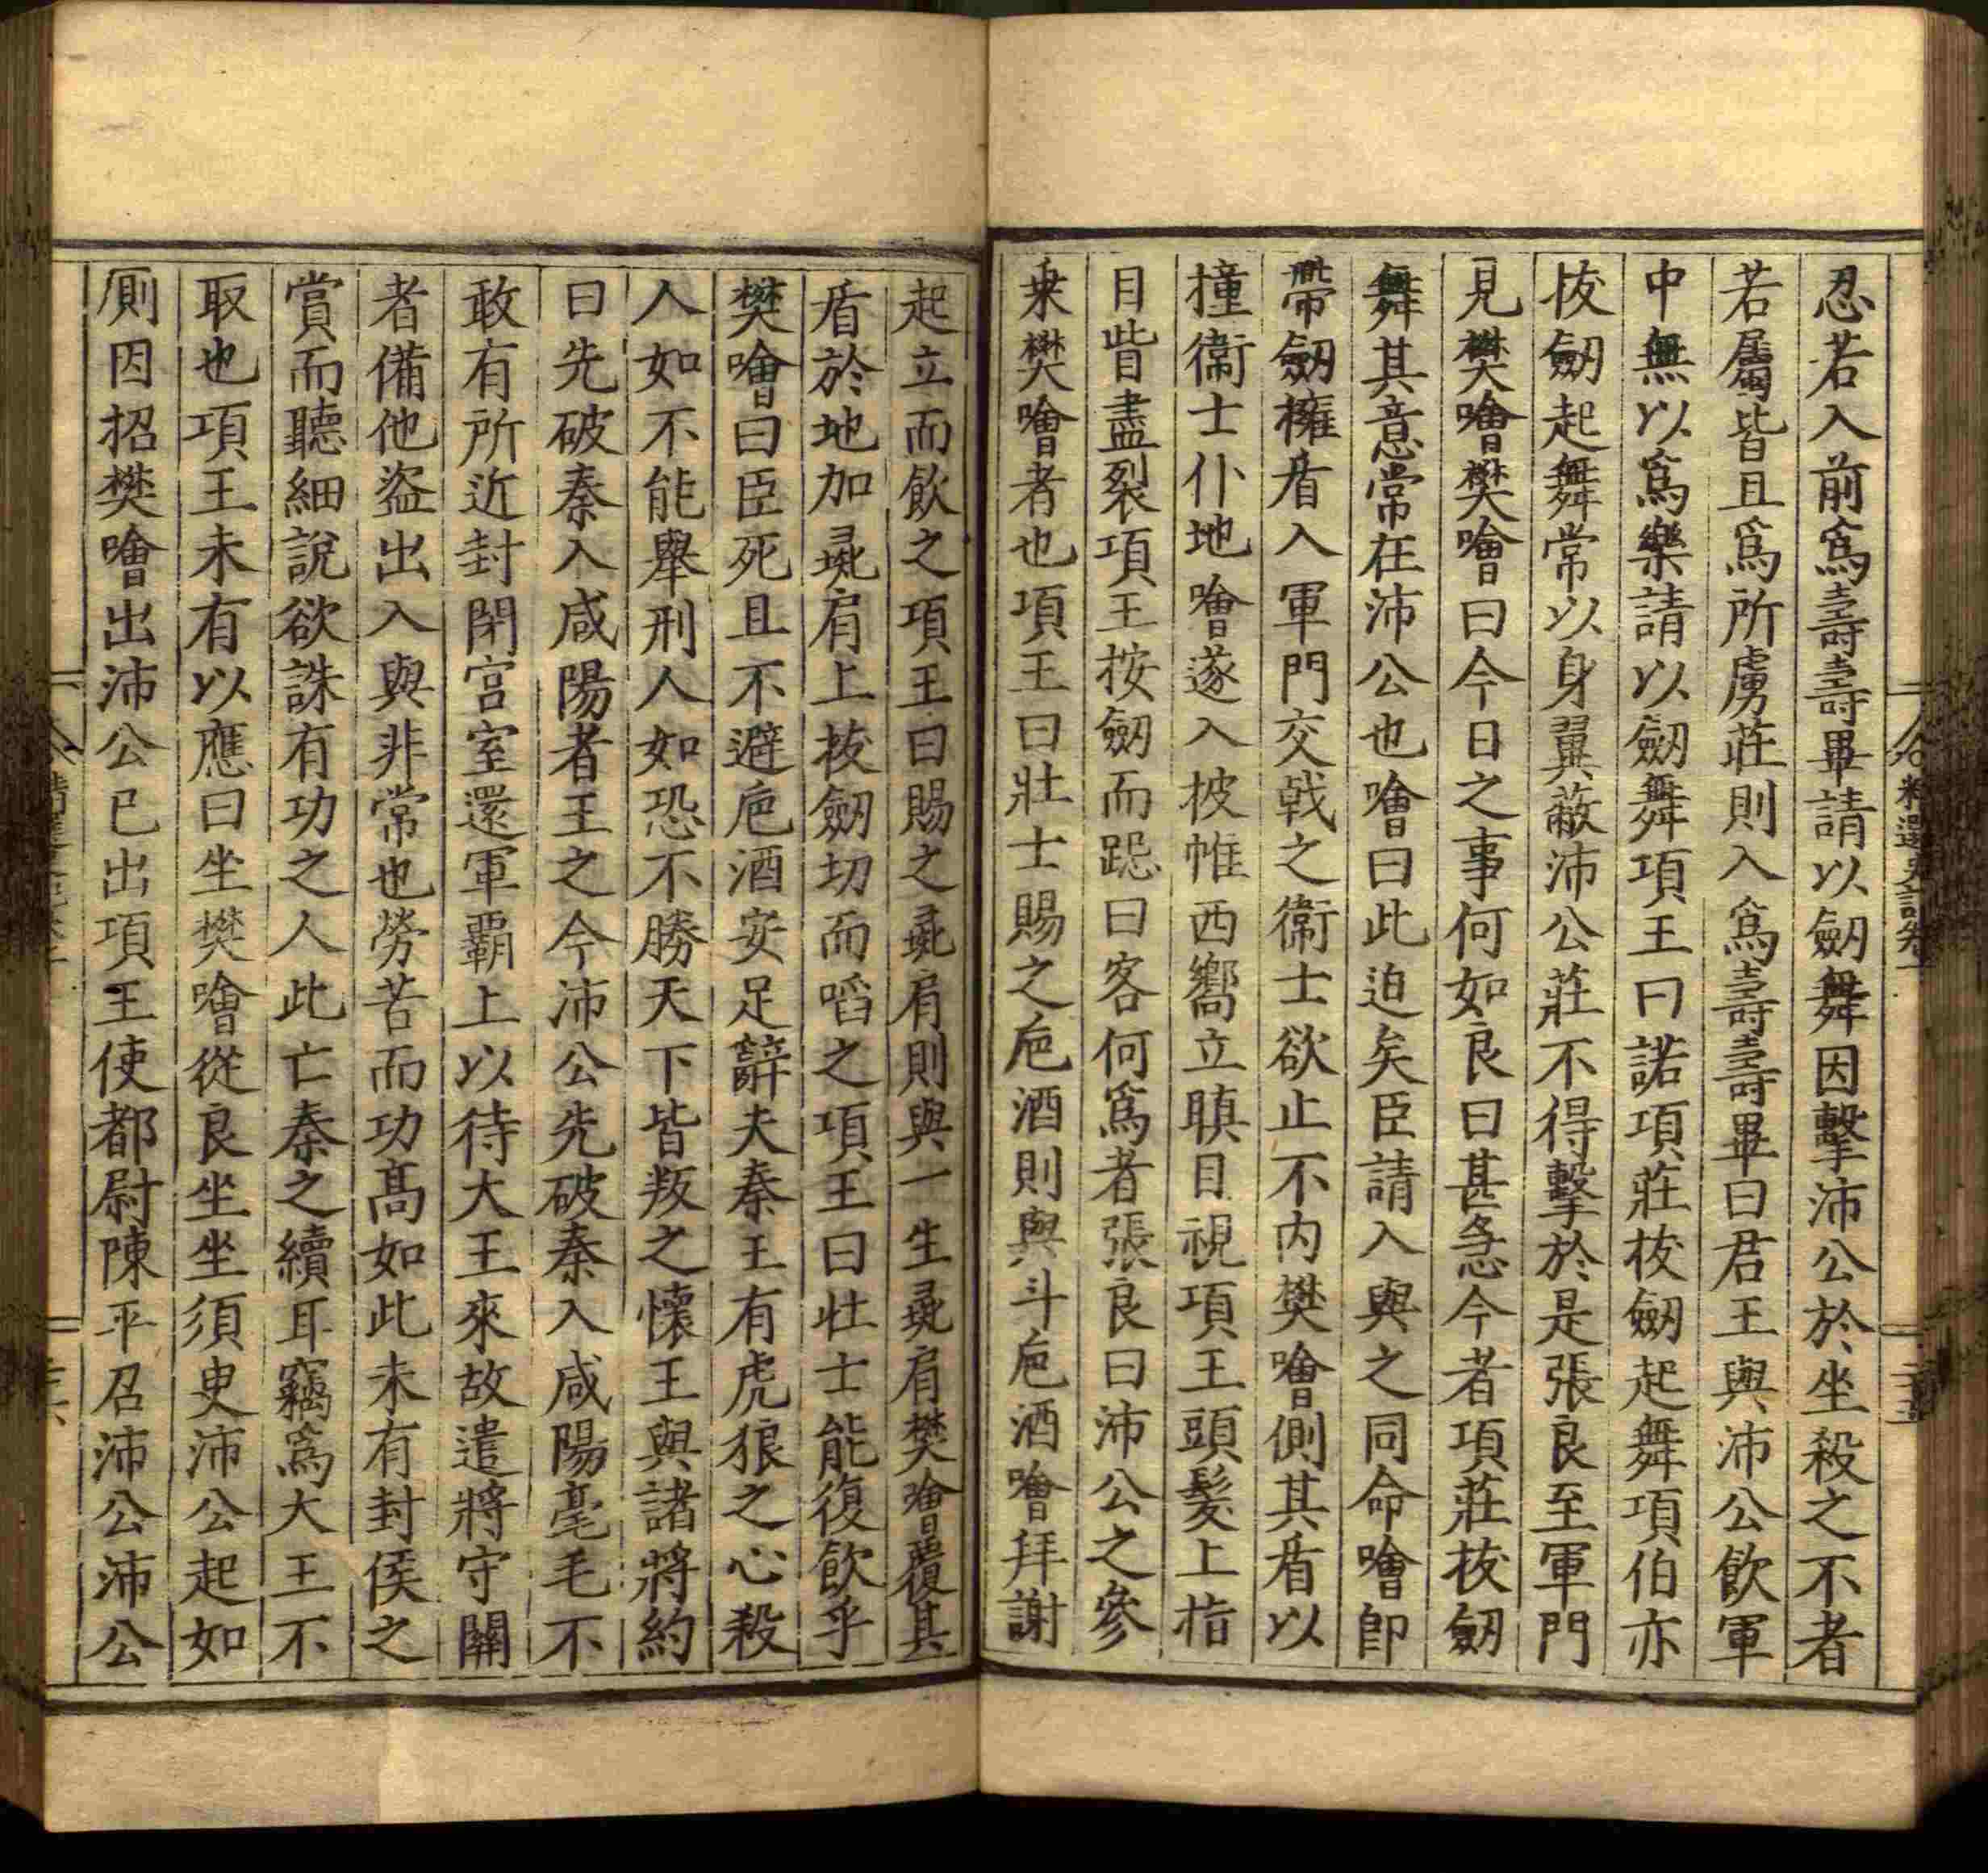 精選史記卷
忍若入前爲壽壽畢請以劒舞因擊沛公於坐殺之不者
若屬皆且爲所虜莊則入爲壽壽畢曰君王與沛公飲軍
中無以爲樂請以劒舞項王曰諾項莊拔劒起舞項伯亦
拔劒起舞常以身翼蔽沛公莊不得擊於是張良至軍門
見樊噲樊噲曰今日之事何如良曰甚急今者項莊拔劒
舞其意常在沛公也噲曰此迫矣臣請入與之同命噲卽
帶劒擁盾入軍門交戟之衛士欲止不內樊噲側其盾以
撞衛士仆地噲遂入披帷西嚮立瞋目視項王頭髮上指
目眥盡裂項王按劒而跽曰客何爲者張良曰沛公之參
乗樊噲者也項王曰壯士賜之巵酒則與斗巵酒噲拜謝
起立而飮之項王曰賜之彘肩則與一生彘肩樊噲覆其
盾於地加彘肩上拔劒切而啗之項王曰壯士能復飮乎
樊噲曰臣死且不避巵酒安足辭夫秦王有虎狼之心殺
人如不能舉刑人如恐不勝天下皆叛之懷王與諸將約
曰先破秦入咸陽者王之今沛公先破秦入咸陽毫毛不
敢有所近封閉宮室還軍霸上以待大王來故遣將守關
者備他盜出入與非常也勞苦而功髙如此未有封侯之
賞而聽細說欲誅有功之人此亡秦之續耳竊爲大王不
取也項王未有以應曰坐樊噲從良坐坐須臾沛公起如
厠因招樊噲出沛公已出項王使都尉陳平召沛公沛公